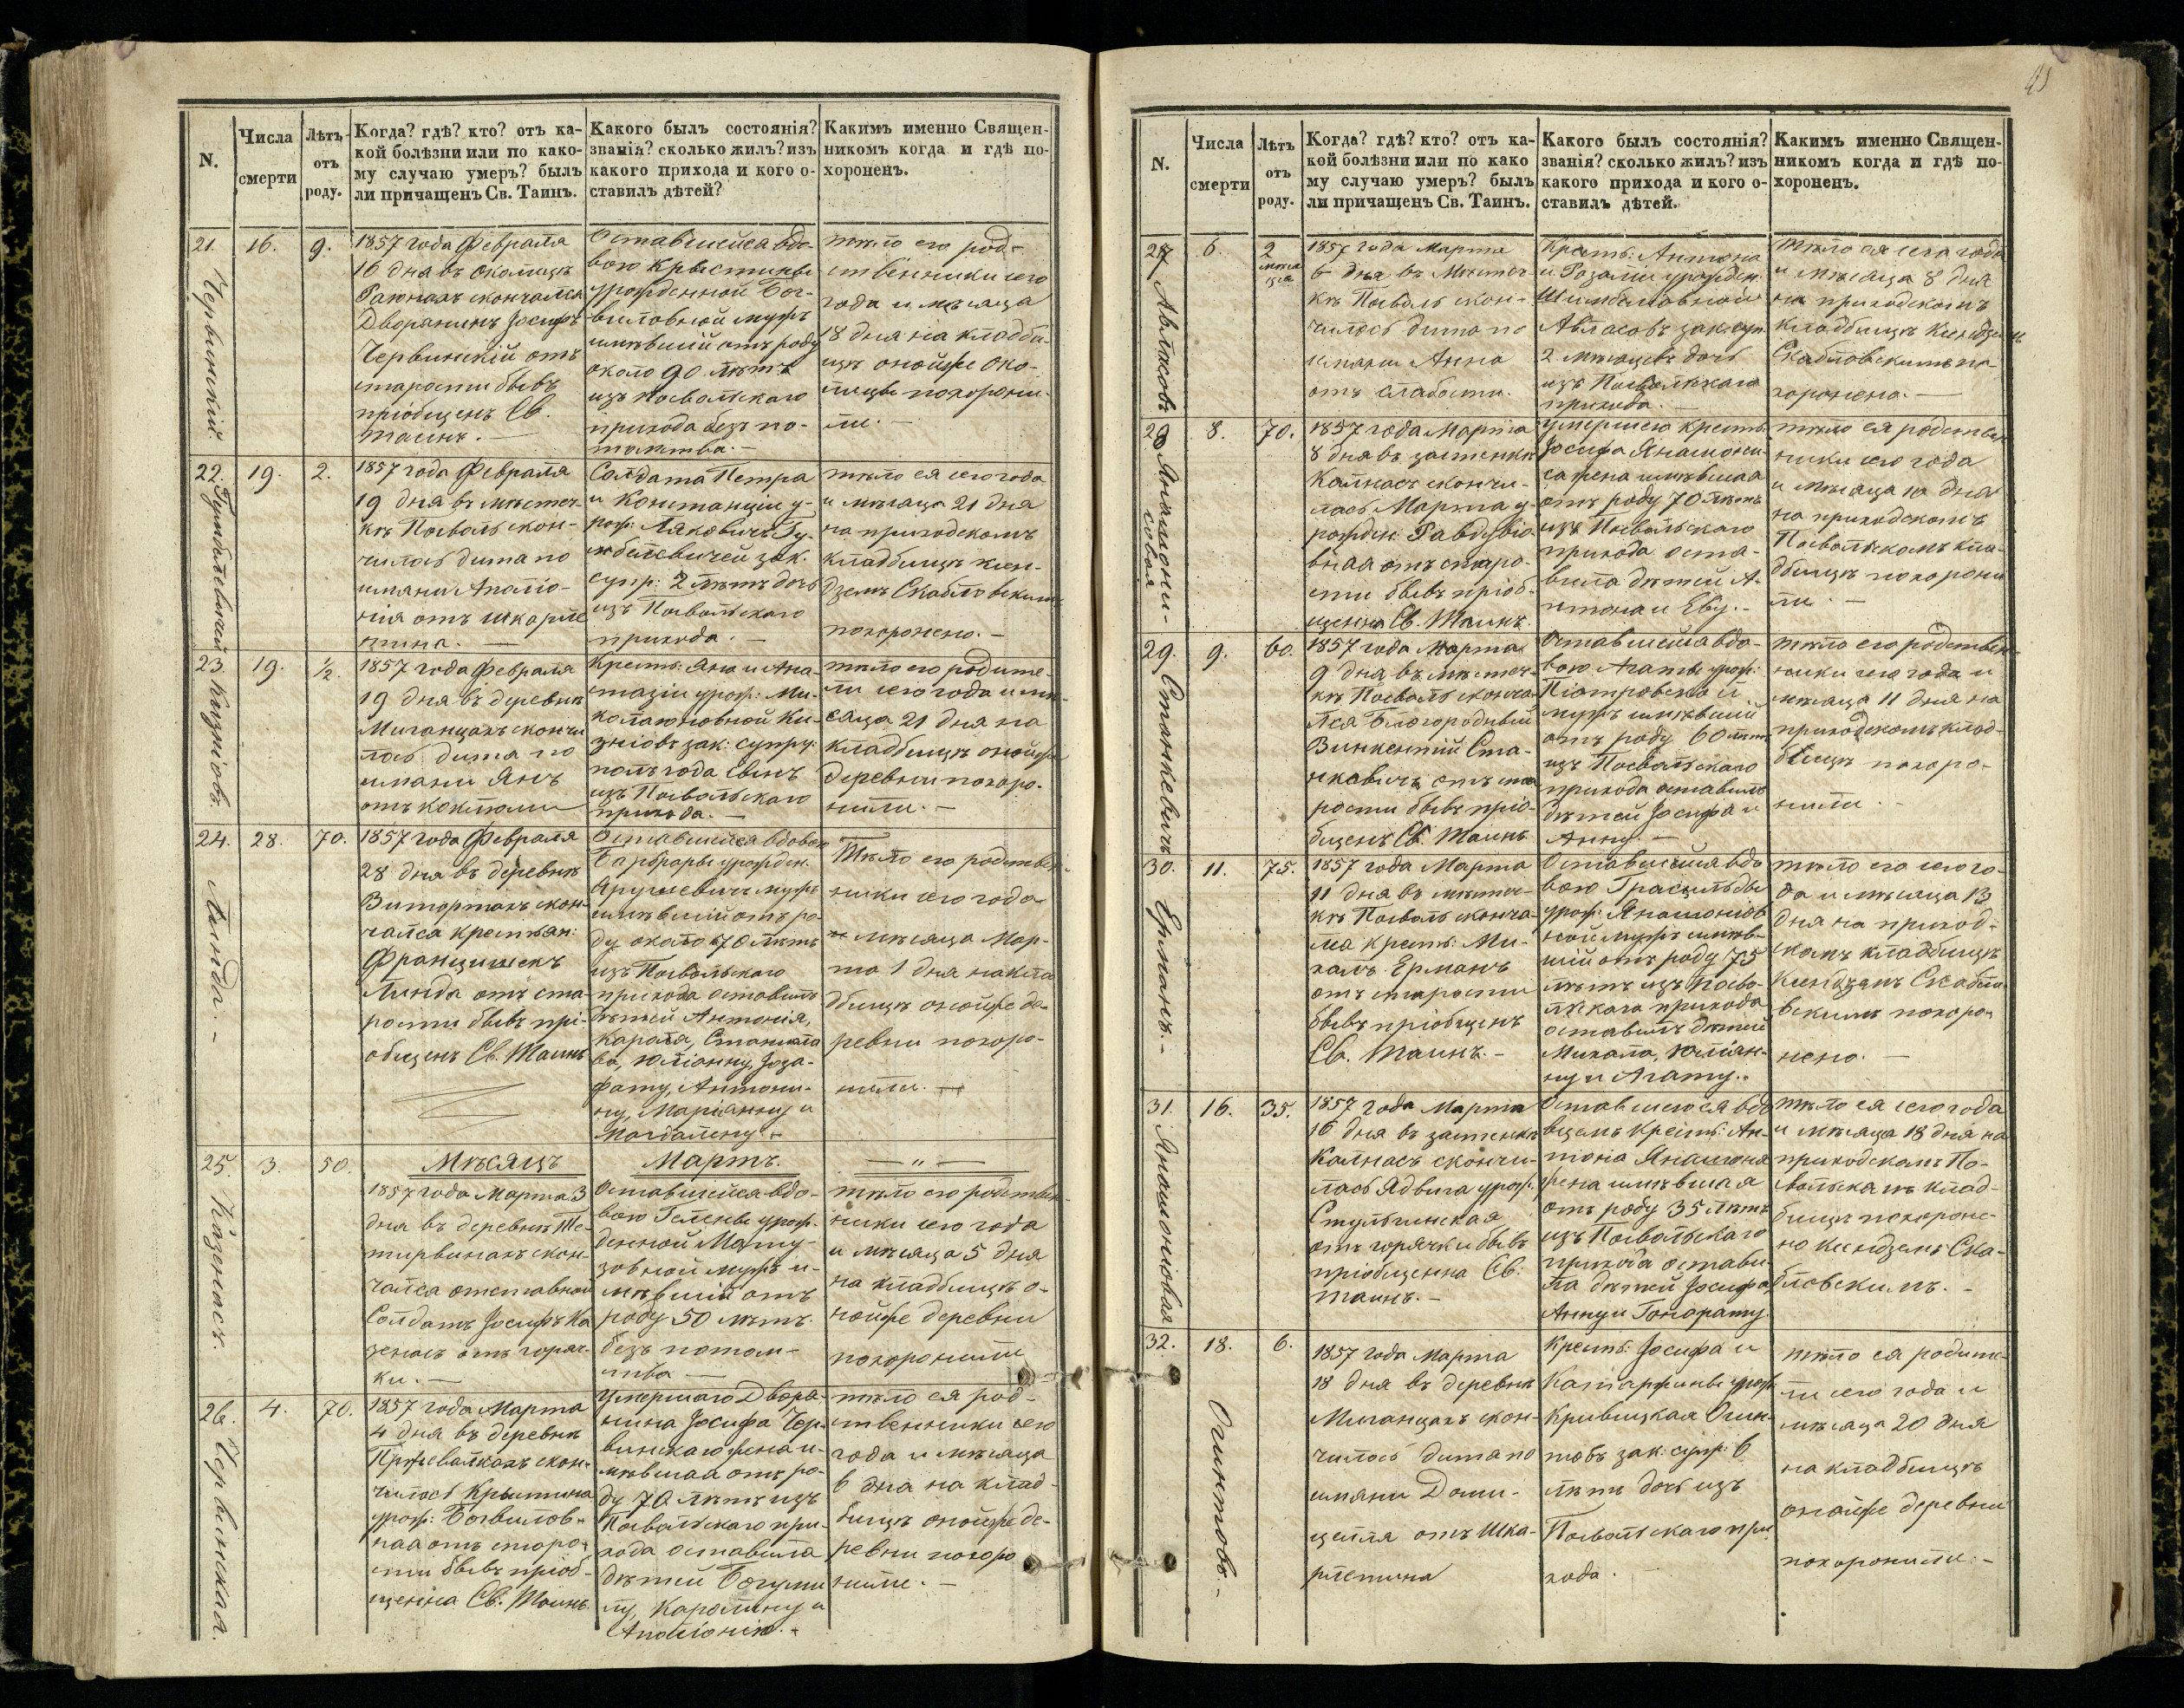 N.
Числа
смерти
Лѣтъ
отъ
роду.
Когда? гдѣ? кто? отъ ка-
кой болѣзни или по како-
му случаю умеръ? былъ
ли причащенъ Св. Таинъ.
Какого былъ состоянія?
званія? сколько жилъ? изъ
какого прихода и кого о-
ставилъ дѣтей?
Какимъ именно Священ-
никомъ когда и гдѣ по-
хороненъ.
21.
Червинскій.
16.
9.
1857 года Февраля
16 дня въ околицѣ
скончался
Дворянинъ Іосифъ
Червинскій отъ
старости бывъ
пріобщенъ Св.
Таинъ. —
Оставшейся вдо-
вою Крыстины
урожденной Бог-
виловной мужъ
имѣвшій отъ роду
около 90 лѣтъ
изъ Посвольскаго
прихода безъ по-
томства. —
тѣло его род-
ственники сего
года и мѣсяца
18 дня на кладби-
щѣ онойже око-
лицы похорони-
ли. —
22.
Гумбалевичей
19.
2.
1857 года Февраля
19 дня въ мѣстеч-
кѣ Посволь скон-
чилось дитя по
имяни Аполо-
нія отъ шкарле
тина. —
Солдата Петра
и Констанціи у-
рож: Ляховичъ Гу-
мбалевичей зак.
супр: 2 лѣтъ дочь
изъ Посвольскаго
прихода. —
тѣло ея сего года
и мѣсяца 21 дня
на приходскомъ
кладбищѣ ксен-
дземъ Скабловскимъ
похоронено. —
23.
Кизніовъ.
19.
½.
1857 года Февраля
19 дня въ деревнѣ
Миганцахъ скончи
лось дитя по
имяни Янъ
отъ коклюши
Крестъ: Яна и Ана-
стазіи урож: Ми-
колаюновной Ки-
зніовъ зак: супру:
полъ года сынъ
изъ Посвольскаго
прихода. —
тѣло его родите-
ли сего года и мѣ-
сяца 21 дня на
кладбищѣ онойже
деревни похоро-
нили. —
24.
Линда. —
28.
70.
1857 года Февраля
28 дня въ деревнѣ
Виторпахъ скон-
чался крестьян:
Францишекъ
Линда отъ ста-
рости бывъ прі-
общенъ Св. Таинъ
Оставшейся вдовою
Барбары урожден.
Ярушевичъ мужъ
имѣвшій отъ ро-
ду около 70 лѣтъ
изъ Посвольскаго
прихода оставилъ
дѣтей Антонія,
Кароля, Станисла
ва, Юліанну, Іоза-
фату, Антони-
ну, Маріанну и
Магдалену. —
Тѣло его родствен-
ники сего года
и мѣсяца Мар-
та 1 дня на кла
дбищѣ онойже де-
ревни похоро-
нили. —
Мѣсяцъ
Мартъ.
— „ —
25.
Казенасъ.
3.
50.
1857 года Марта 3
дня въ деревнѣ Те-
тирвинахъ скон-
чался отставной
Солдатъ Іосифъ Ка
зенасъ отъ горяч-
ки. —
Оставшейся вдо-
вою Гелены урож-
денной Мату-
зовной мужъ и-
мѣвшій отъ
роду 50 лѣтъ.
безъ потом-
ства —
тѣло его родствен-
ники сего года
и мѣсяца 5 дня
на кладбищѣ о-
нойже деревни
похоронили
26.
Червинская.
4.
70.
1857 года Марта
4 дня въ деревнѣ
Пржевалкахъ скон-
чилась Крыстина
урож: Богвилов-
ная отъ старо-
сти бывъ пріоб-
щенна Св. Таинъ.
Умершаго Дворя-
нина Іосифа Чер-
винскаго жена и-
мѣвшая отъ ро-
ду 70 лѣтъ изъ
Посвольскаго при-
хода оставила
дѣтей Богуми
лу, Каролину и
Аполонію. —
тѣло ея род-
ственники сего
года и мѣсяца
6 дня на клад-
бищѣ онойже де-
ревни похоро
нили. —
41
N.
Числа
смерти
Лѣтъ
отъ
роду.
Когда? гдѣ? кто? отъ ка-
кой болѣзни или по како
му случаю умеръ? былъ
ли причащенъ Св. Таинъ.
Какого былъ состоянія?
званія? сколько жилъ? изъ
какого прихода и кого о-
ставилъ дѣтей.
Какимъ именно Священ-
никомъ когда и гдѣ по-
хороненъ.
27
Авласовъ
6.
2
мѣся
ца
1857 года Марта
6 дня въ Мѣстеч-
кѣ Посволь скон-
чилось дитя по
имяни Анна
отъ слабости.
Крестъ: Антона
и Розаліи урожден.
Авласовъ зак. супр.
2 мѣсяцевъ дочь
изъ Посвольскаго
прихода. —
Тѣло ея сего года
и мѣсяца 8 дня
на приходскомъ
кладбищѣ Ксендземъ
Скабловскимъ по-
хоронено. —
28
Янашони-
совая
8.
70.
1857 года Марта
8 дня въ застенкѣ
Калнасъ скончи-
лась Марта у-
рожден: Равдзвіо
вная отъ старо-
сти бывъ пріоб-
щенна Св. Таинъ.
Умершего крестъ.
Іосифа Янашони-
са жена имѣвшая
отъ роду 70 лѣтъ
изъ Посвольскаго
прихода оста-
вила дѣтей А-
нтона и Еву. —
тѣло ея родствен
ники сего года
и мѣсяца 10 дня
на приходскомъ
Посвольскомъ кла-
дбищѣ похорони
ли. —
29.
Станкевичъ
9.
60.
1857 года Марта
9 дня въ мѣстеч-
кѣ Посволь сконча
лся Благородный
Винкентій Ста-
нкевичъ отъ ста
рости бывъ прі-
общенъ Св. Таинъ
Оставшейся вдо-
вою Агаты урож:
Піотровской
мужъ имѣвшій
отъ роду 60 лѣтъ
изъ Посвольскаго
прихода оставилъ
дѣтей Іосифа и
Анну. —
тѣло его родствен-
ники сего года и
мѣсяца 11 дня на
приходскомъ клад-
бищѣ похоро-
нили. —
30.
Ерманъ. —
11.
75.
1857 года Марта
11 дня въ мѣстеч-
кѣ Посволь сконча-
лся крестъ: Ми-
халъ Ерманъ
отъ старости
бывъ пріобщенъ
Св. Таинъ. —
Оставшейся вдо
вою Грасильды
урож: Янашоніов
ной мужъ имѣв-
шій отъ роду 75
лѣтъ изъ Посво-
льскаго прихода
оставилъ дѣтей
Михала, Юліан-
ну и Агату. —
тѣло его сего го-
да и мѣсяца 13
дня на приход-
скомъ кладбищѣ
Ксендзамъ Скабло-
вскимъ похоро-
нено. —
31.
Янашоніовая
16.
35.
1857 года Марта
16 дня въ застенкѣ
Калнасъ скончи-
лась Ядвига урож.
Стульгинская
отъ горячки бывъ
пріобщенна Св.
Таинъ. —
Оставшегося вдо
вцемъ крестъ: Ан-
тонія Янашона
жена имѣвшая
отъ роду 35 лѣтъ
изъ Посвольскаго
прихода остави-
ла дѣтей Іосифа,
Анну и Гонорату.
Тѣло ея сего года
и мѣсяца 18 дня на
приходскомъ По-
свольскомъ клад-
бищѣ похороне-
но ксендземъ Ска-
бловскимъ. —
32.
Огинтовъ. —
18.
6.
1857 года Марта
18 дня въ деревнѣ
Миганцахъ скон-
чилось дитя по
имяни Доми-
целля отъ Шка-
рлетина
Крестъ: Іосифа и
Катаржины урож
Кривицкая Огин-
товъ зак: супр: 6
лѣтъ дочь изъ
Посвольскаго при
хода.
тѣло ея родите-
ли сего года и
мѣсяца 20 дня
на кладбищѣ
онойже деревни
похоронили. —